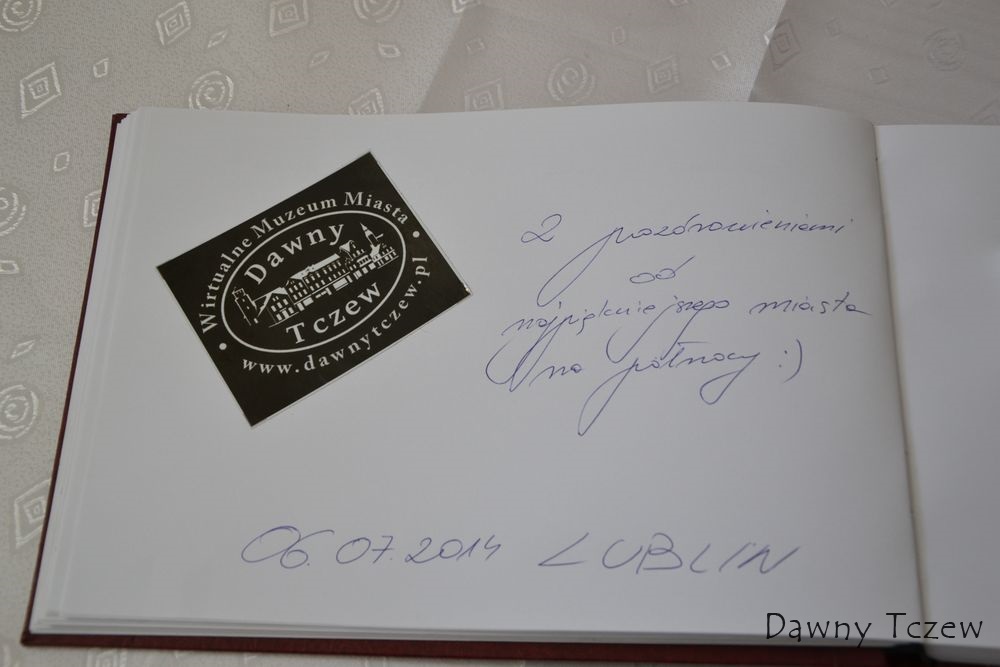 Wirtualne Muzeum Miasta
Dawny
Tczew
www.dawnytczew.pl
Z pozdrowieniami
od
najpiękniejszego miasta
na północy :)
06.07.2014 LUBLIN
Dawny Tczew